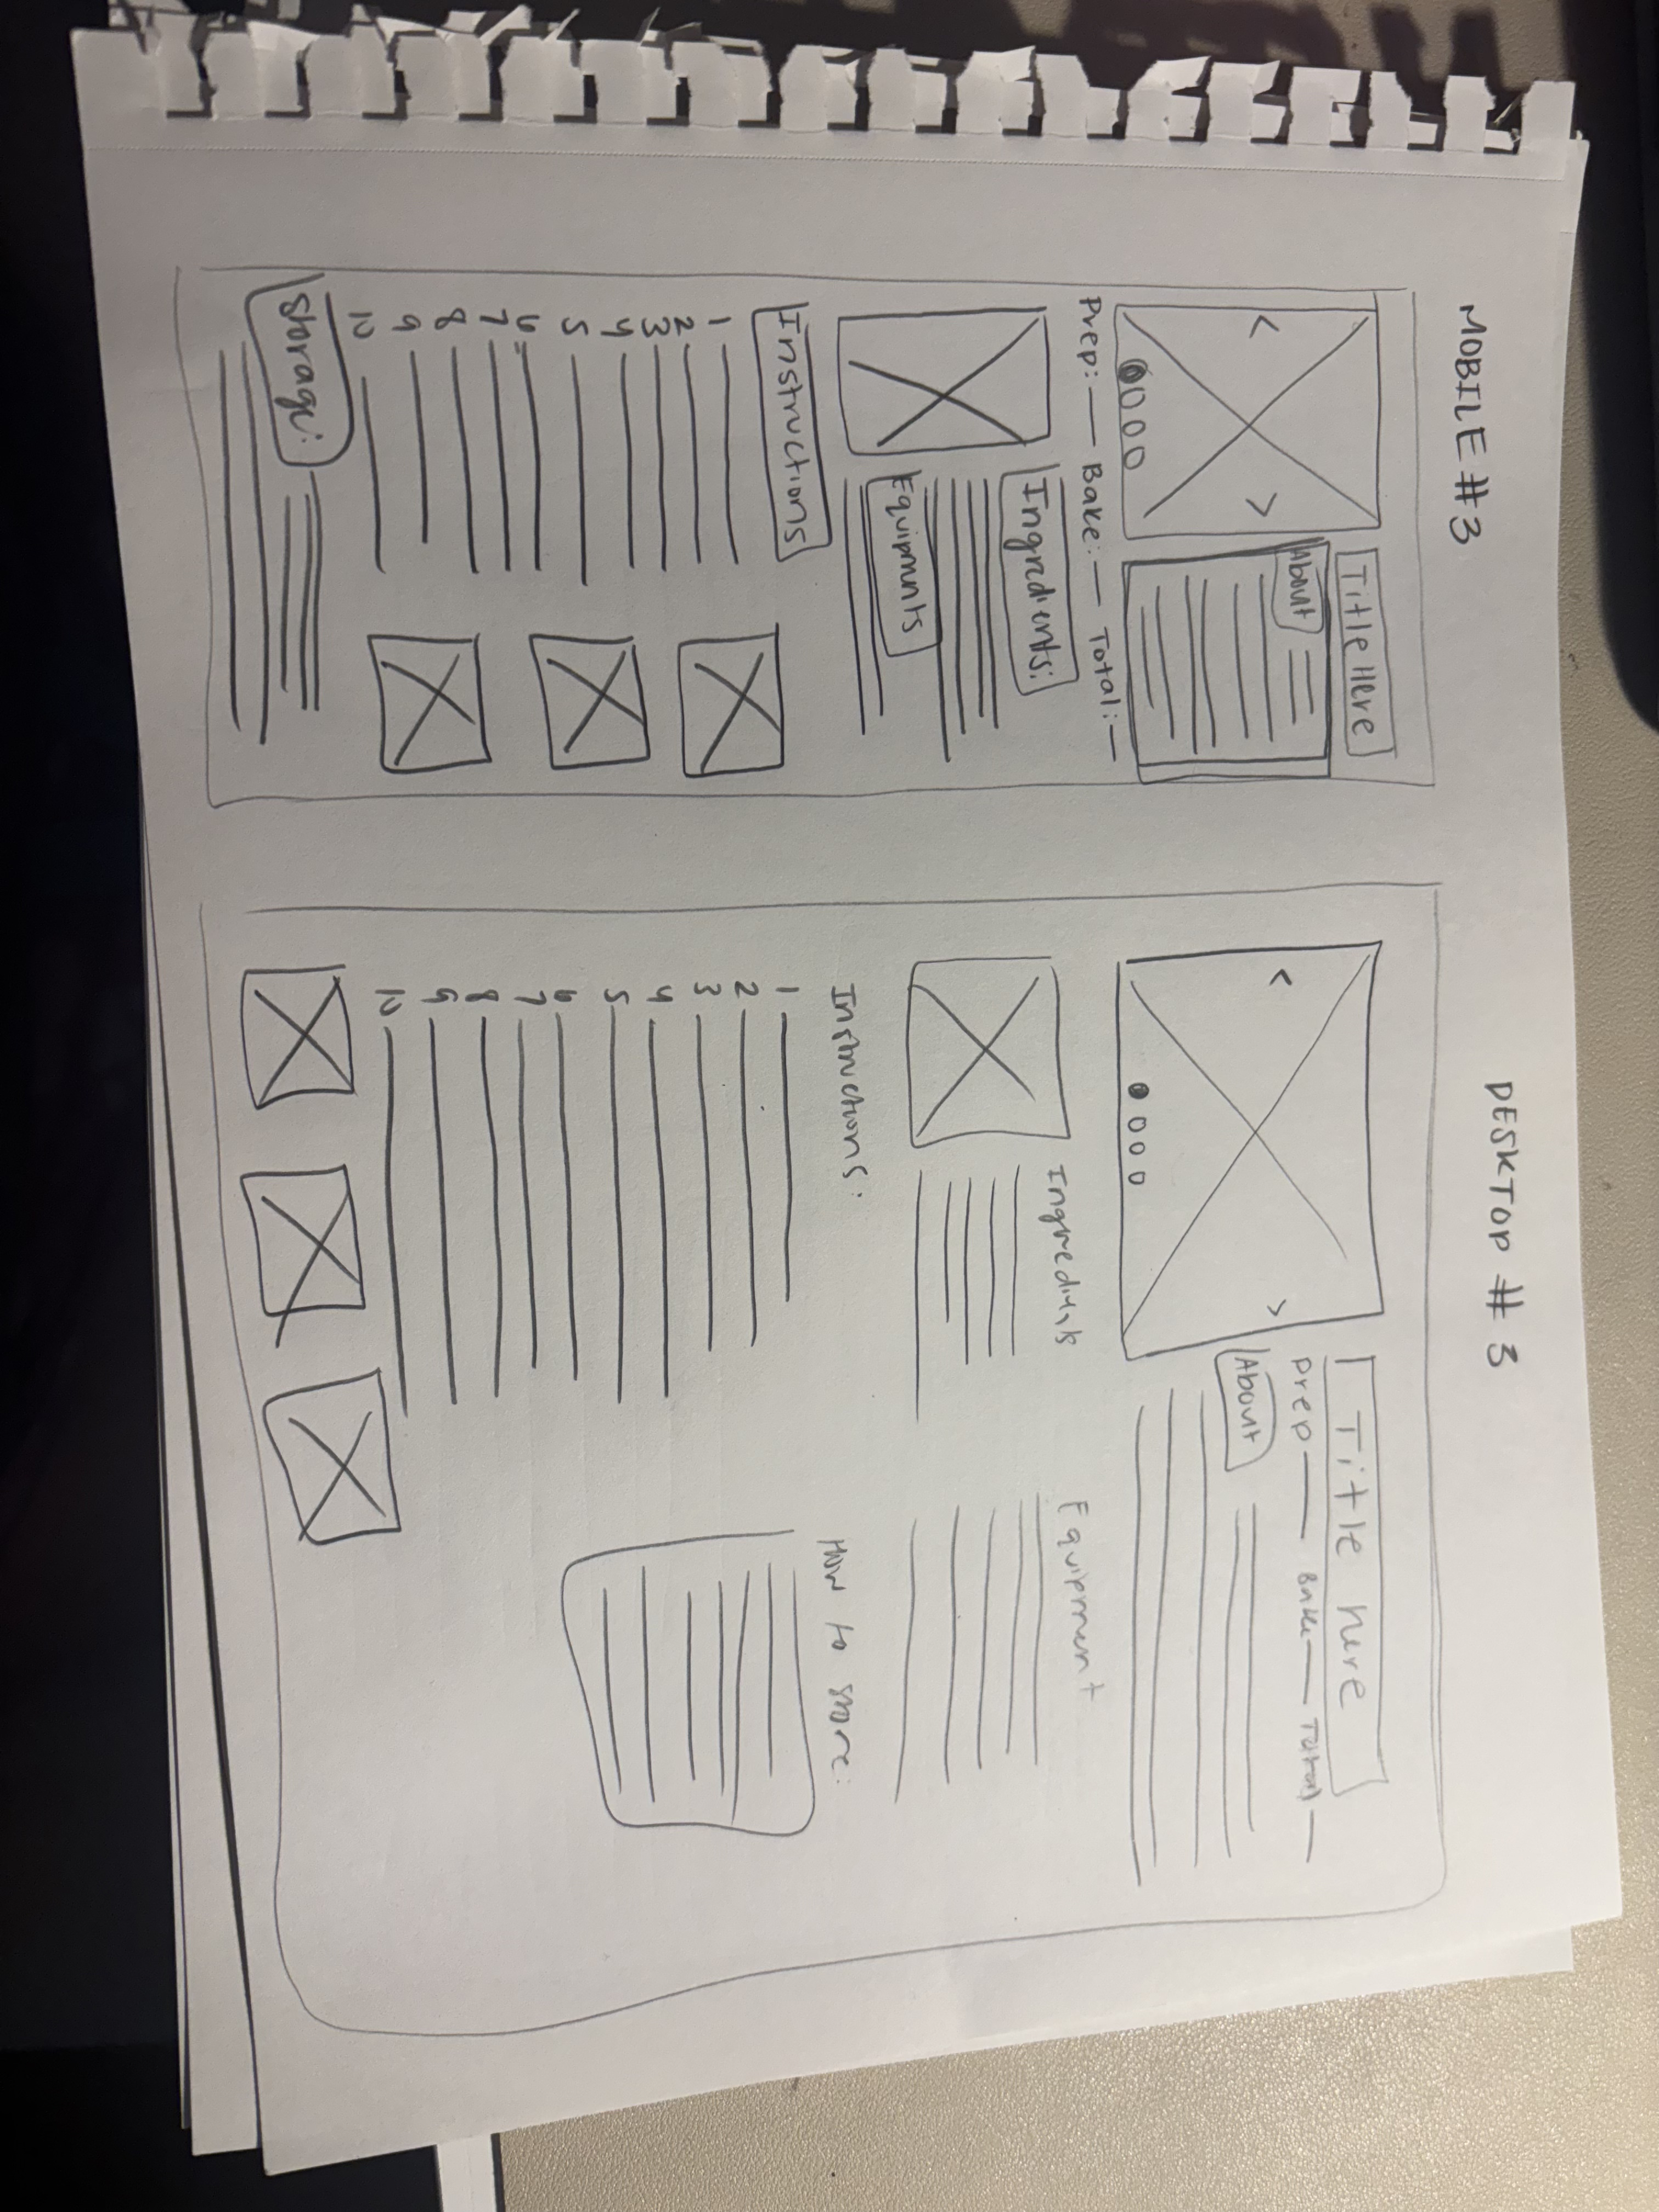 MOBILE #3
Title Here
< >
About
Prep: Bake: Total:
Ingredients:
Equipments
Instructions
1
2
3
4
5
6
7
8
9
10
Storage:
DESKTOP #3
Title here
Prep Bake Total
< >
About
Ingredients
Equipment
Instructions:
1
2
3
4
5
6
7
8
9
10
How to store: